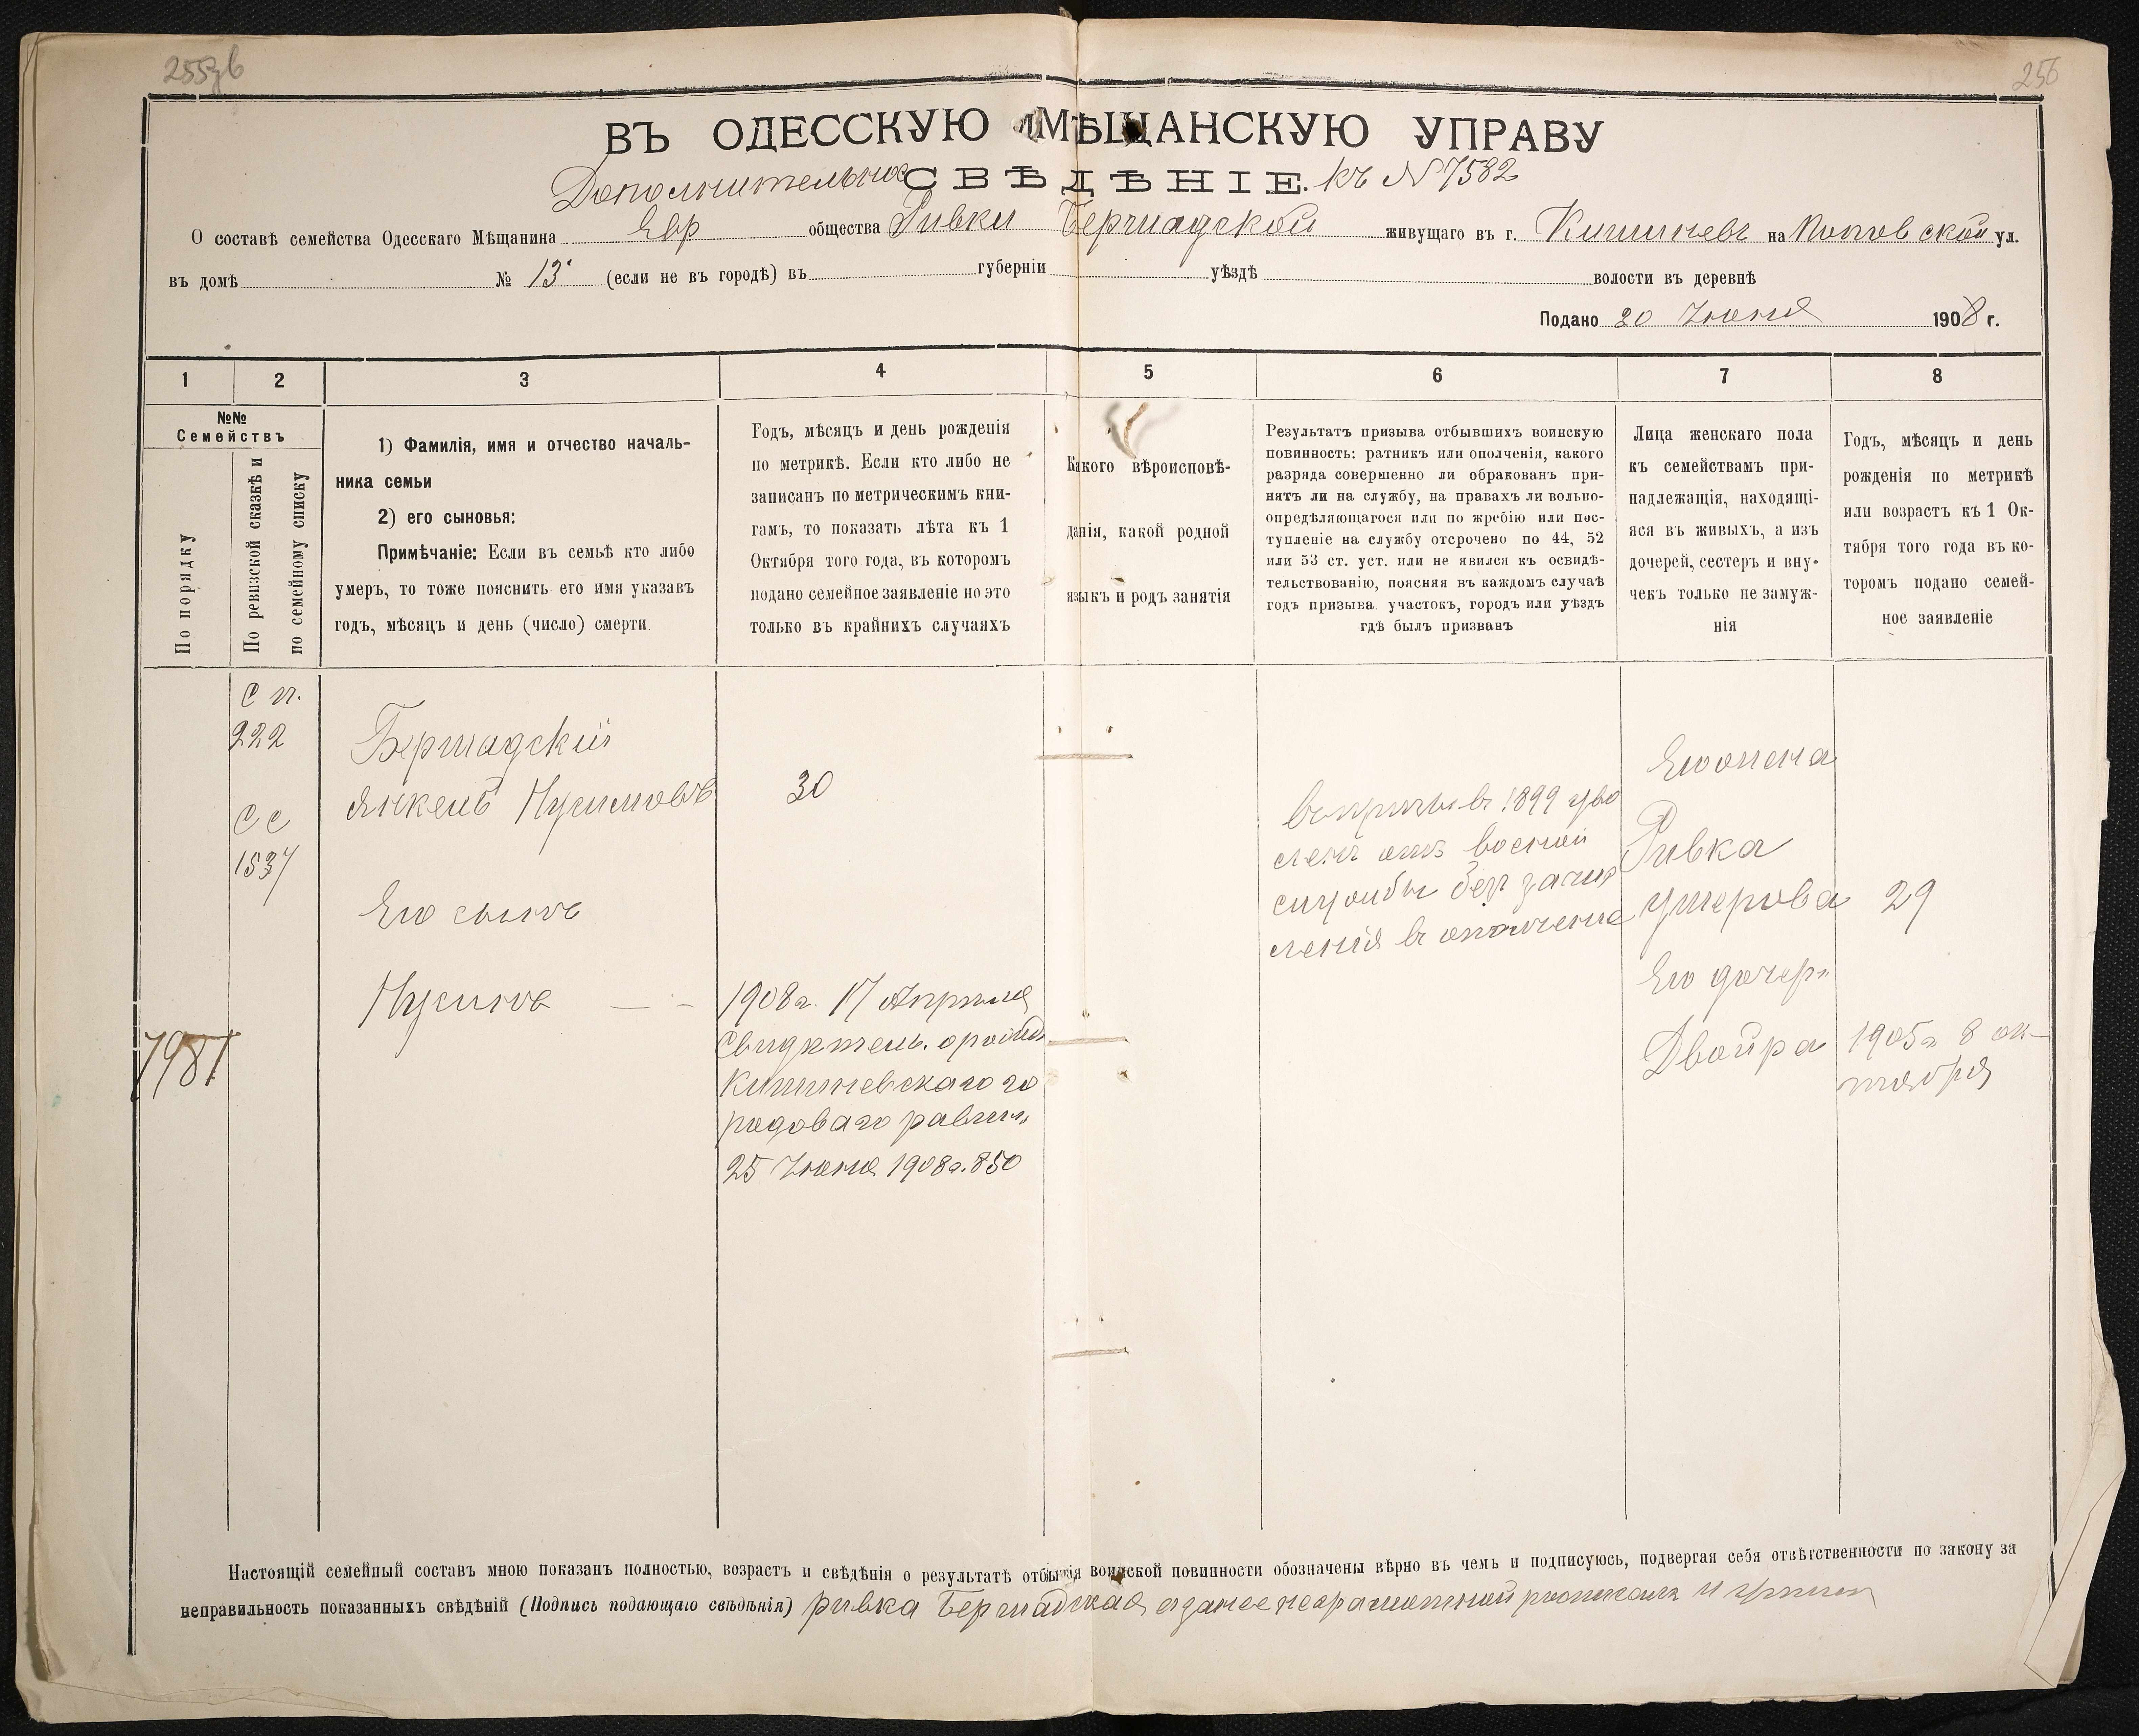 255зв
256
ВЪ ОДЕССКУЮ МѢЩАНСКУЮ УПРАВУ
Дополнительное СВѢДѢНІЕ. къ № 7582
О составѣ семейства Одесскаго Мѣщанина Евр общества Ривки Бершадской живущаго въ г. Кишиневъ на Поповской ул.
въ домѣ № 13 (если не въ городѣ) въ губерніи уѣздѣ волости въ деревнѣ
Подано 20 Іюня 1908 г.
1 2 3 4 5 6 7 8
№№
Семействъ
По порядку
По ревизской сказкѣ и
по семейному списку
1) Фамилія, имя и отчество началь-
ника семьи
2) его сыновья:
Примѣчаніе: Если въ семьѣ кто либо
умеръ, то тоже пояснить его имя указавъ
годъ, мѣсяцъ и день (число) смерти
Годъ, мѣсяцъ и день рожденія
по метрикѣ. Если кто либо не
записанъ по метрическимъ кни-
гамъ, то показать лѣта къ 1
Октября того года, въ которомъ
подано семейное заявленіе но это
только въ крайнихъ случаяхъ
Какого вѣроисповѣ-
данія, какой родной
языкъ и родъ занятія
Результатъ призыва отбывшихъ воинскую
повинность: ратникъ или ополченія, какого
разряда совершенно ли обракованъ при-
нятъ ли на службу, на правахъ ли вольно-
опредѣляющагося или по жребію или пос-
тупленіе на службу отсрочено по 44, 52
или 53 ст. уст. или не явился къ освидѣ-
тельствованію, поясняя въ каждомъ случаѣ
годъ призыва участокъ, городъ или уѣздъ
гдѣ былъ призванъ
Лица женскаго пола
къ семействамъ при-
надлежащія, находящі-
яся въ живыхъ, а изъ
дочерей, сестеръ и вну-
чекъ только не замуж-
нія
Годъ, мѣсяцъ и день
рожденія по метрикѣ
или возрастъ къ 1 Ок-
тября того года въ ко-
торомъ подано семей-
ное заявленіе
7981
С п.
222
С с
1537
Бершадскій
Янкель Нусимовъ
Его сынъ
Нусинъ
30
1908 г. 17 Апрѣля
Свидѣтель. о рожд
Кишиневскаго го
родоваго равин
25 Іюня 1908 г. 850
въ 1899 уво
ленъ отъ военной
службы безъ зачис
ленія въ ополченіе
Его жена
Ривка
Ушерова
29
Его дочерь
Двойра
1905 г 8 ок-
тября
Настоящій семейный составъ мною показанъ полностью, возрастъ и свѣдѣнія о результатѣ отбытія воинской повинности обозначены вѣрно въ чемъ и подписуюсь, подвергая себя отвѣтственности по закону за
неправильность показанныхъ свѣдѣній (Подпись подающаго свѣдѣнія) Ривка Бершадская а за нее неграмотной